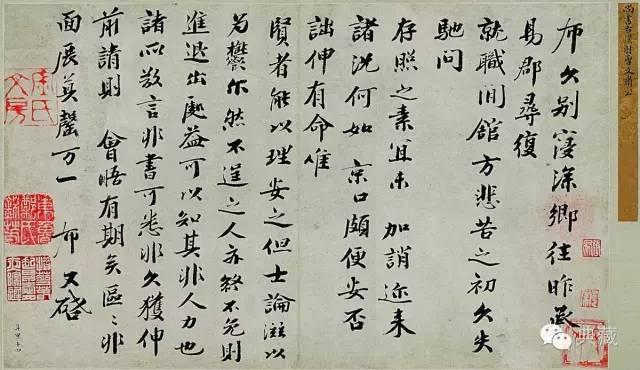 尚書右僕射曾文肅公
布久别寖深鄉往昨承
易郡尋復
就職閒館方悲苦之初久失
馳問
存照之素宜未加誚迩来
諸況何如京口頗便安否
詘伸有命唯
賢者能以理安之但士論滋以
為鬱尓然不逞之人亦終不免則
進退出處益可以知其非人力也
諸所欲言非書可悉非久獲伸
前請則會晤有期矣區〻非
面展莫罄万一布又啓
典藏